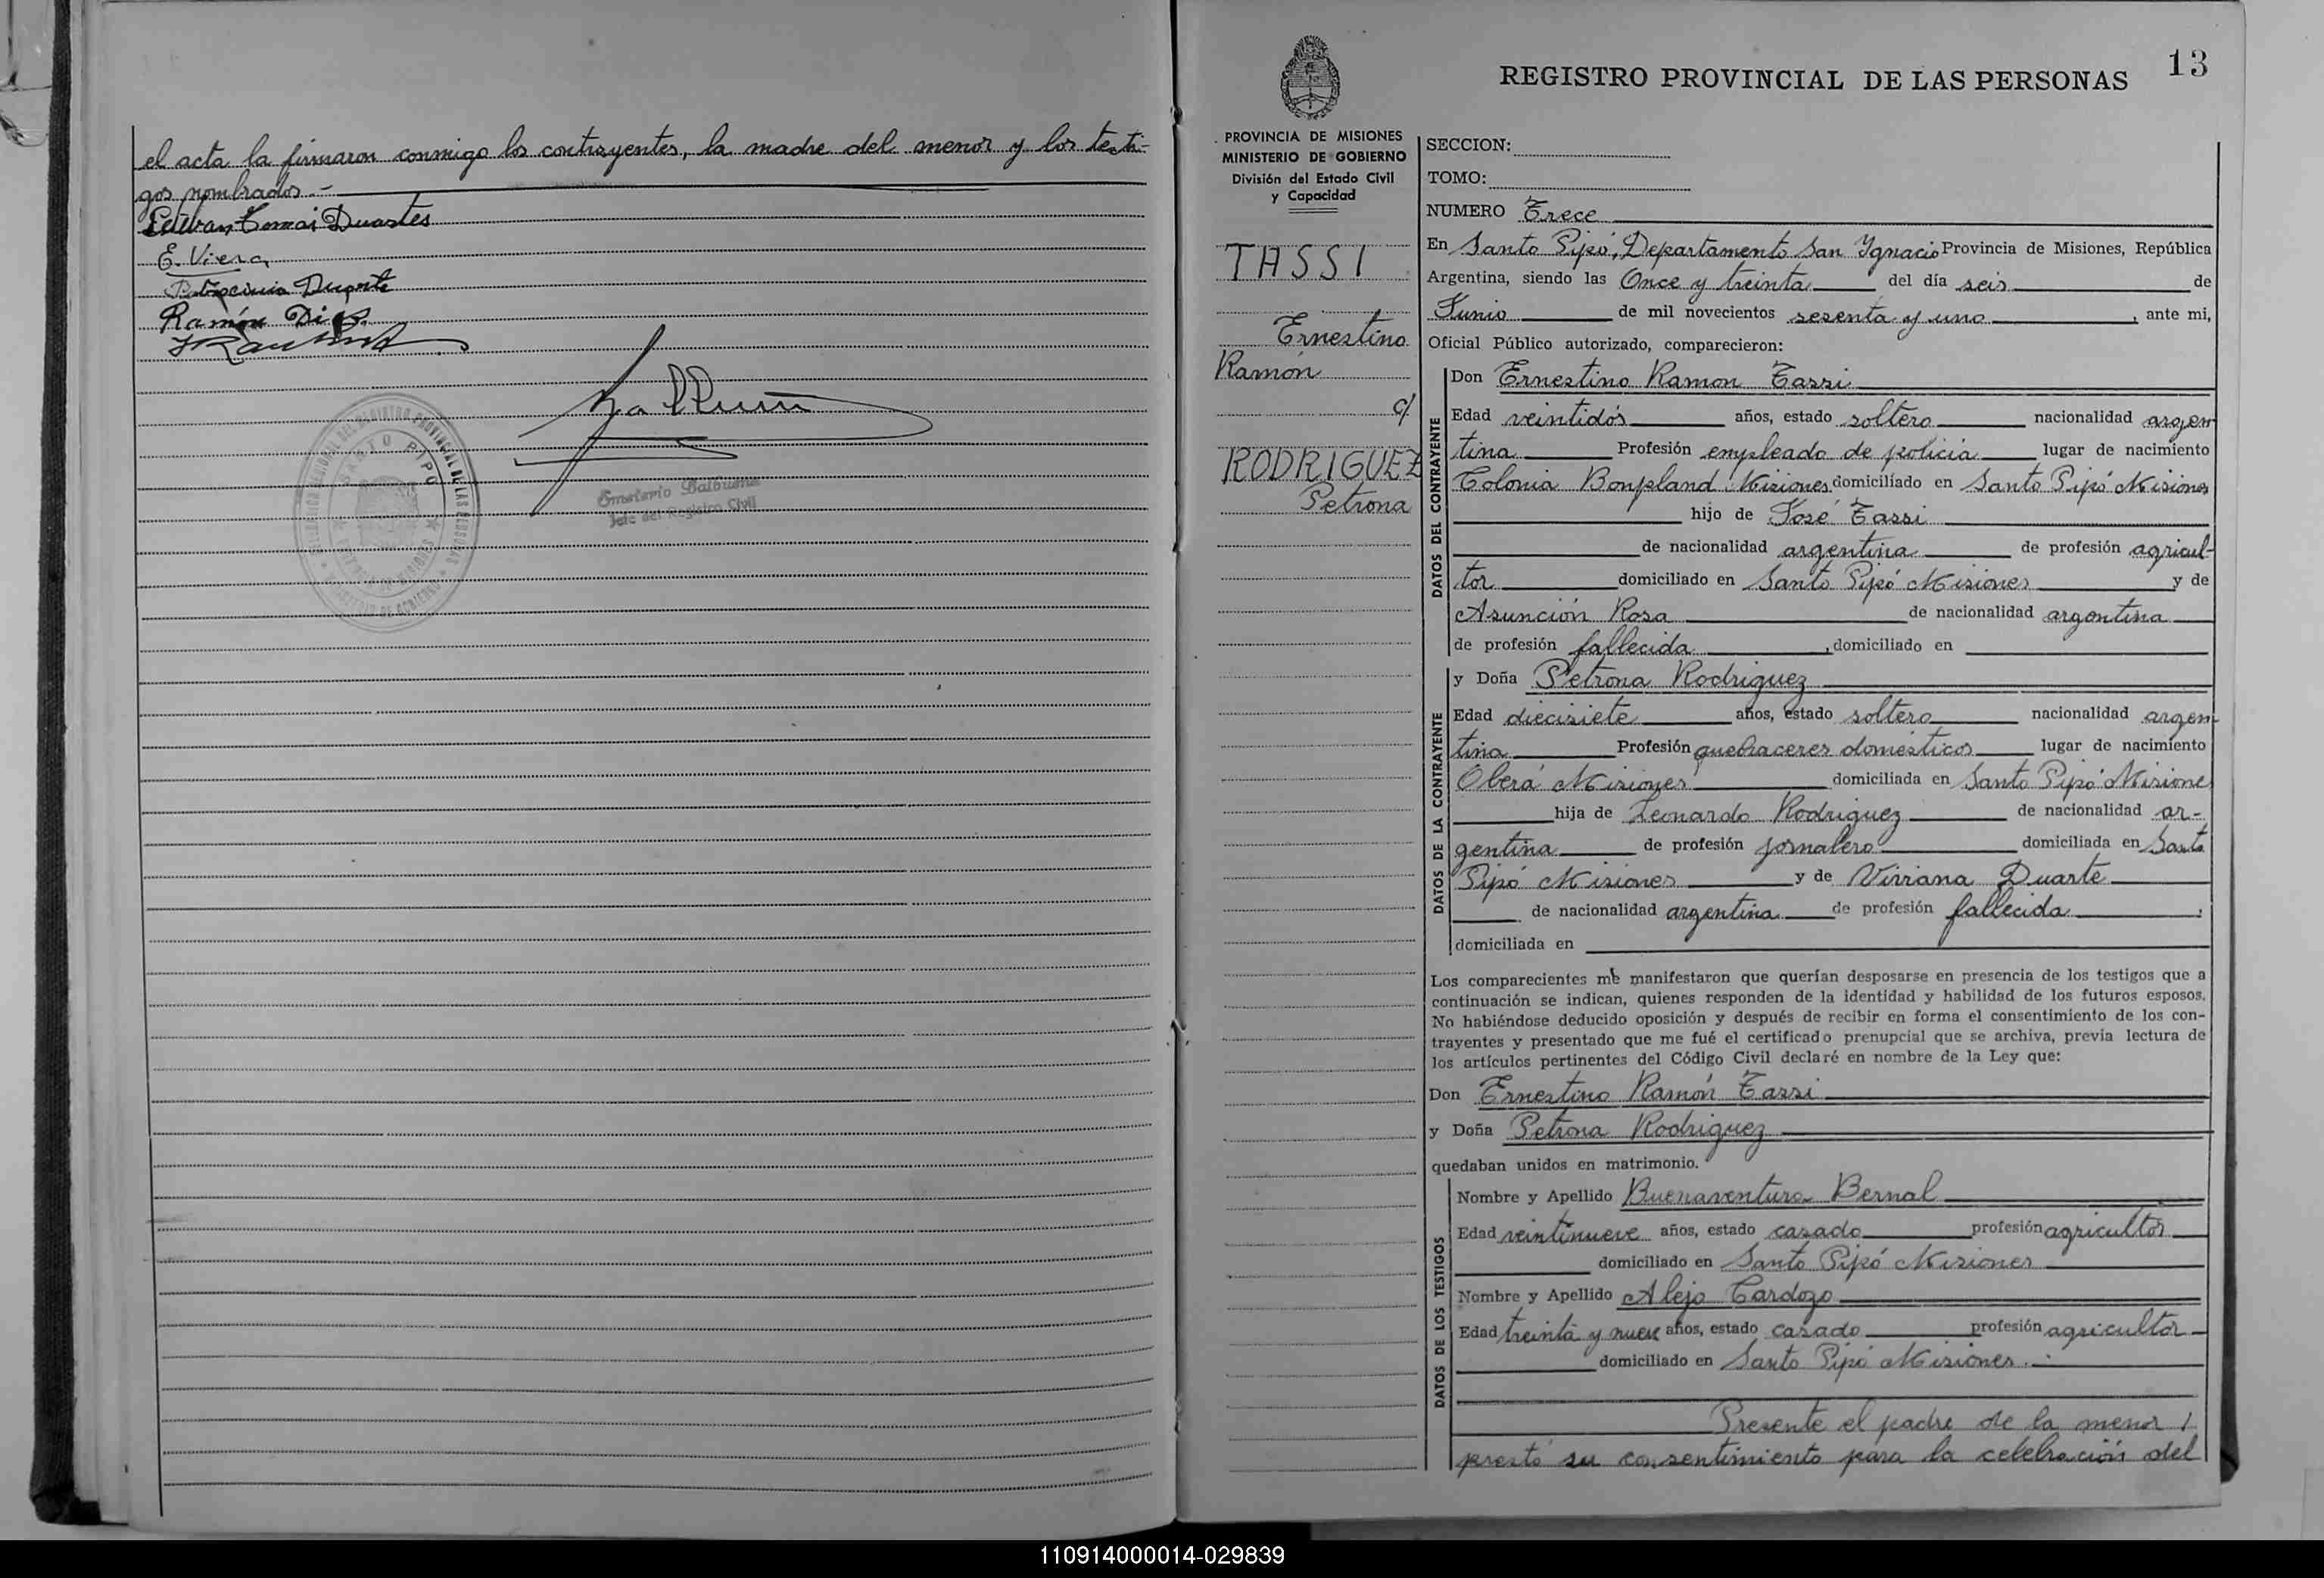 el acta la firmaron conmigo los contrayentes, la madre del menor y los testi-
gos nombrados.-
Esteban Tomas Duartes
E. Viera
Patrocinia Duarte
Ramón
SANTO PIPÓ
Emeterio Balbuena
Jefe del Registro Civil
13
REGISTRO PROVINCIAL DE LAS PERSONAS
PROVINCIA DE MISIONES
MINISTERIO DE GOBIERNO
División del Estado Civil
y Capacidad
TASSI
Ernestino
Ramón
c/
RODRIGUEZ
Petrona
SECCION:
TOMO:
NUMERO Trece
En Santo Pipó, Departamento San Ygnacio Provincia de Misiones, República
Argentina, siendo las Once y treinta del día seis de
Junio de mil novecientos sesenta y uno, ante mi,
Oficial Público autorizado, comparecieron:
DATOS DEL CONTRAYENTE
Don Ernestino Ramon Tassi
Edad veintidós años, estado soltero nacionalidad argen
tina Profesión empleado de policia lugar de nacimiento
Colonia Bonpland Misiones domiciliado en Santo Pipó Misiones
hijo de José Tassi
de nacionalidad argentina de profesión agricul-
tor domiciliado en Santo Pipó Misiones y de
Asunción Rosa de nacionalidad argentina
de profesión fallecida, domiciliado en
DATOS DE LA CONTRAYENTE
y Doña Petrona Rodriguez
Edad diecisiete años, estado soltero nacionalidad argen-
tina Profesión quehaceres domésticos lugar de nacimiento
Oberá Misiones domiciliada en Santo Pipó Misiones
hija de Leonardo Rodriguez de nacionalidad ar-
gentina de profesión jornalero domiciliada en Santo
Pipó Misiones y de Virrana Duarte
de nacionalidad argentina de profesión fallecida,
domiciliada en
Los comparecientes me manifestaron que querían desposarse en presencia de los testigos que a
continuación se indican, quienes responden de la identidad y habilidad de los futuros esposos.
No habiéndose deducido oposición y después de recibir en forma el consentimiento de los con-
trayentes y presentado que me fué el certificado prenupcial que se archiva, previa lectura de
los artículos pertinentes del Código Civil declaré en nombre de la Ley que:
Don Ernestino Ramón Tassi
y Doña Petrona Rodriguez
quedaban unidos en matrimonio.
DATOS DE LOS TESTIGOS
Nombre y Apellido Buenaventura Bernal
Edad veintinueve años, estado casado profesión agricultor
domiciliado en Santo Pipó Misiones
Nombre y Apellido Alejo Cardozo
Edad treinta y nueve años, estado casado profesión agricultor
domiciliado en Santo Pipó Misiones.-
Presente el padre de la menor /
prestó su consentimiento para la celebración del
110914000014-029839